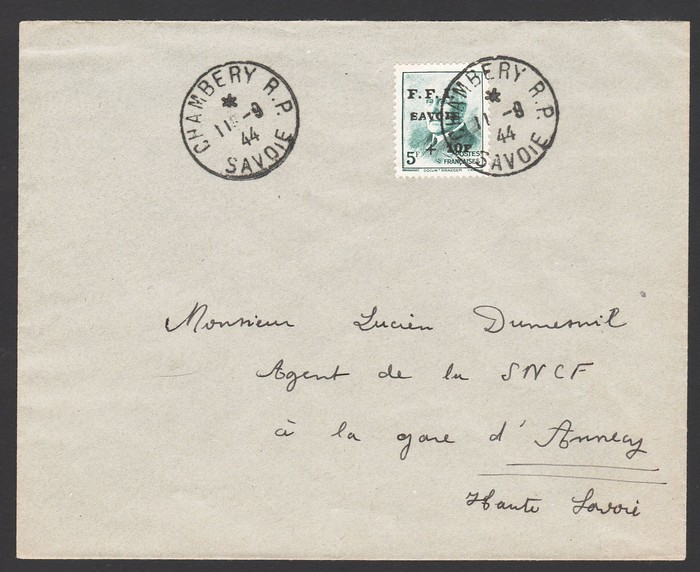 CHAMBERY R.P.
11 -9
44
SAVOIE
F.F.I.
SAVOIE
+ 10F
5F
POSTES
FRANÇAISES
CHAMBERY R.P.
11 -9
44
SAVOIE
Monsieur Lucien Dumesnil
Agent de la SNCF
à la gare d'Annecy
Haute Savoie